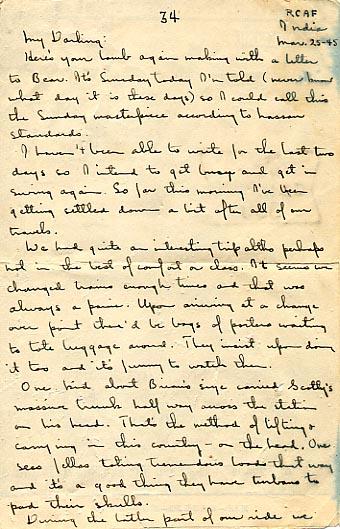 34
RCAF
India
Mar. 25-45
My Darling:
Here's your lamb again making with a letter
to Bear. It's Sunday today I'm told (never know
what day it is these days) so I could call this
the Sunday masterpiece according to
standards.
I haven't been able to write for the last two
days so I intend to get busy and get in
swing again. So far this morning I've been
getting settled down a bit after all of our
travels.
We had quite an interesting trip altho perhaps
not in the best of comfort or class. It seems we
changed trains enough times and that was
always a panic. Upon arriving at a change
over point there'd be boys of porters waiting
to tote luggage around. They insist upon doing
it too and it's funny to watch them.
One kid about size carried Scotty's
massive trunk half way across the station
on his head. That's the method of lifting &
carrying in this country - on the head. One
sees fellas toting tremendous loads that way
and it's a good thing they have turbans to
pad their skulls.
During the latter part of our ride we